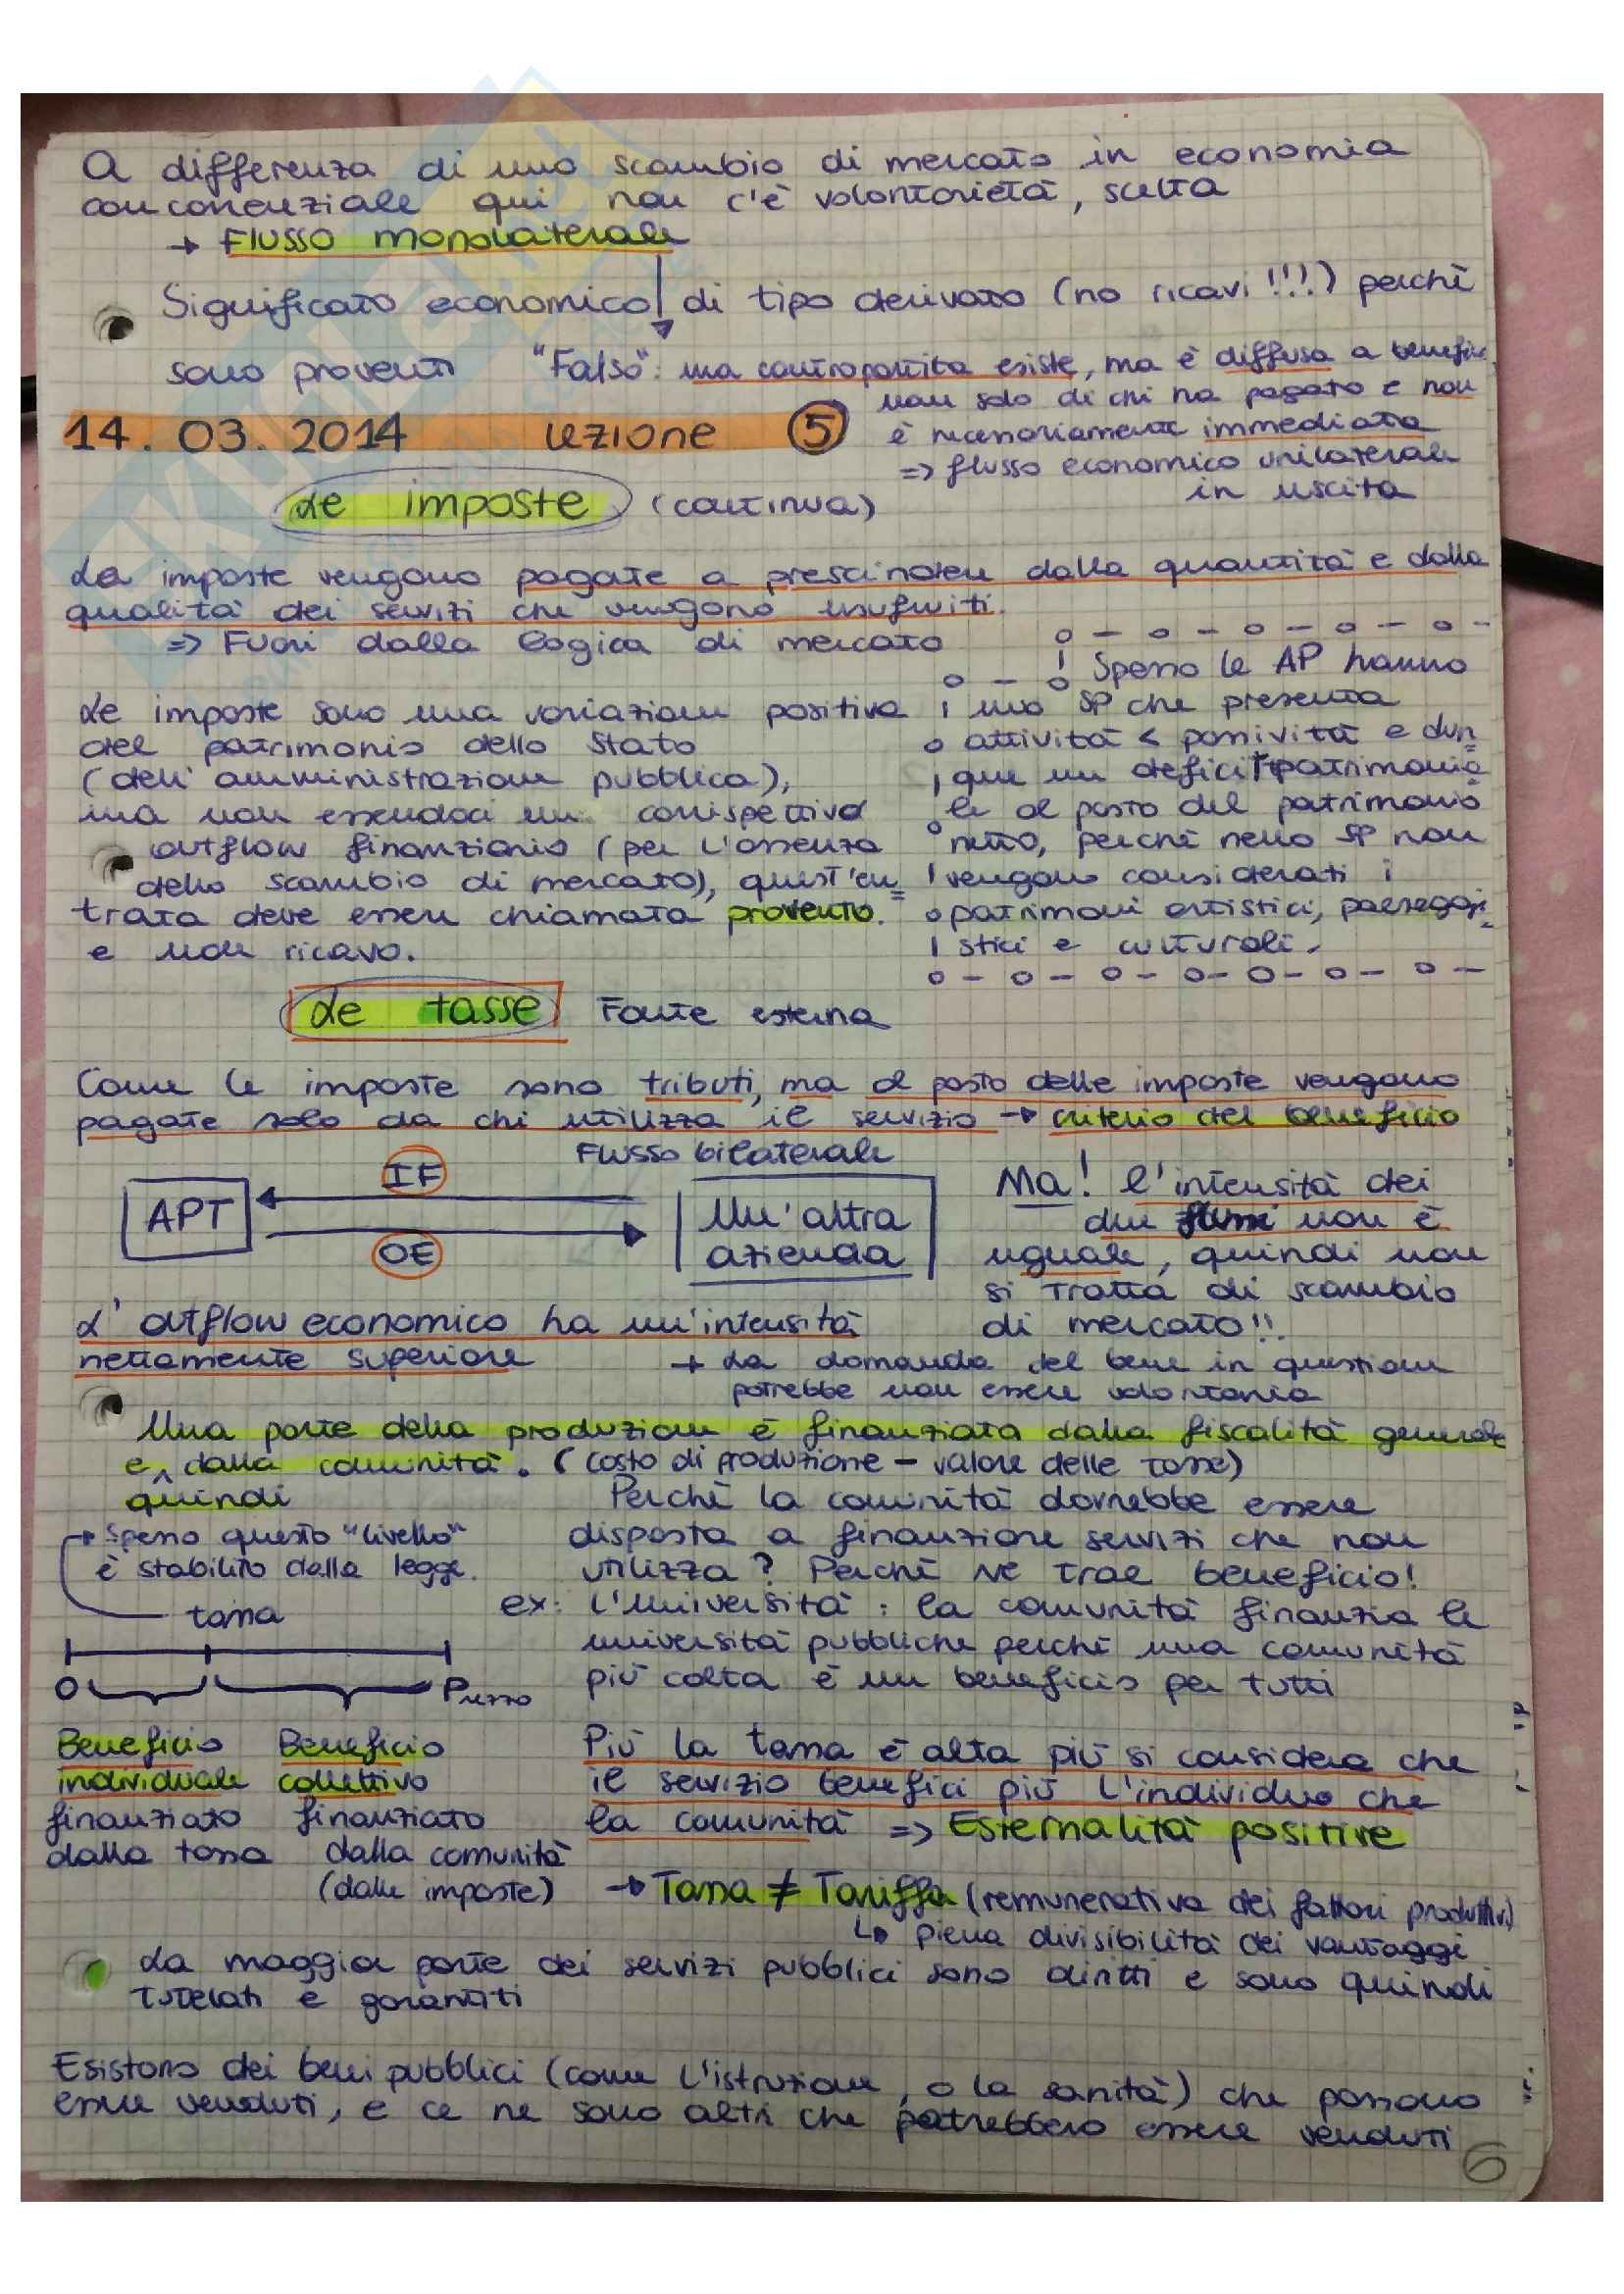 A differenza di uno scambio di mercato in economia
concorrenziale qui non c'è volontarietà, scelta
→ Flusso monolaterale
Significato economico di tipo derivato (no ricavi !!!) perchè
sono proventi
"Falso": una contropartita esiste, ma è diffusa a benefic
non solo di chi ha pagato e non
è necessariamente immediata
=> flusso economico unilaterale
in uscita
14. 03. 2014 LEZIONE 5
Le imposte (continua)
Le imposte vengono pagate a prescindere dalla quantità e dalla
qualità dei servizi che vengono usufruiti.
=> Fuori dalla logica di mercato
Le imposte sono una variazione positiva
del patrimonio dello Stato
(dell'amministrazione pubblica),
ma non essendoci un corrispettivo
outflow finanziario (per l'assenza
dello scambio di mercato), quest'en=
trata deve essere chiamata provento.
e non ricavo.
Spesso le AP hanno
uno SP che presenta
attività < passività e dun=
que un deficit patrimonia
le al posto del patrimonio
netto, perchè nello SP non
vengono considerati i
patrimoni artistici, paesaggi=
stici e culturali.
Le tasse Fonte esterna
Come le imposte sono tributi, ma al posto delle imposte vengono
pagate solo da chi utilizza il servizio → criterio del beneficio
Flusso bilaterale
IF
APT
Un'altra
azienda
OE
Ma! l'intensità dei
due flussi non è
uguale, quindi non
si tratta di scambio
di mercato!!
L'outflow economico ha un'intensità
nettamente superiore
→ La domanda del bene in questione
potrebbe non essere volontaria
Una parte della produzione è finanziata dalla fiscalità generale
e dalla comunità. (costo di produzione - valore delle tasse)
quindi
Spesso questo "livello"
è stabilito dalla legge.
tassa
0 Prezzo
Beneficio individuale finanziato dalla tassa
Beneficio collettivo finanziato dalla comunità
(dalle imposte)
Perchè la comunità dovrebbe essere
disposta a finanziare servizi che non
utilizza? Perchè ne trae beneficio!
ex: L'università: la comunità finanzia le
università pubbliche perchè una comunità
più colta è un beneficio per tutti
Più la tassa è alta più si considera che
il servizio benefici più l'individuo che
la comunità => Esternalità positive
→ Tassa ≠ Tariffa (remunerativa dei fattori produttivi)
↳ piena divisibilità dei vantaggi
La maggior parte dei servizi pubblici sono diritti e sono quindi
tutelati e garantiti
Esistono dei beni pubblici (come l'istruzione, o la sanità) che possono
essere venduti, e ce ne sono altri che potrebbero essere venduti
6